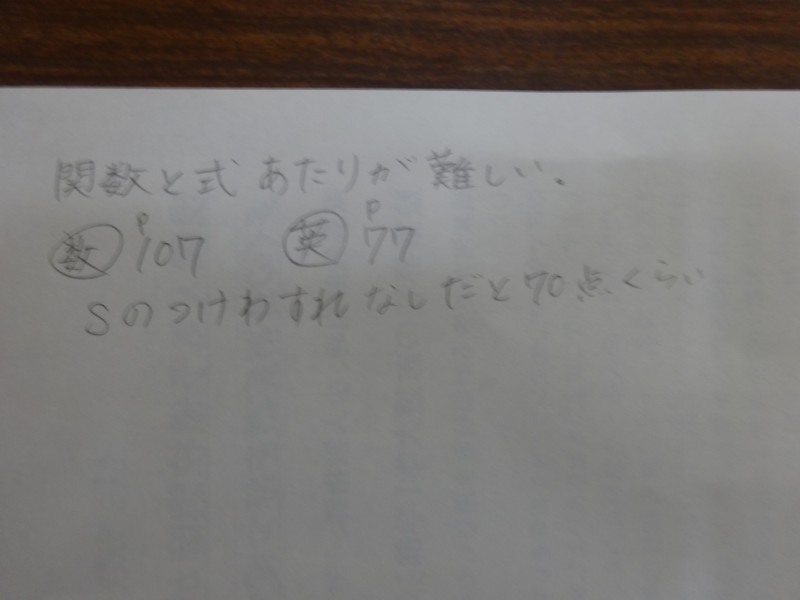 関数と式あたりが難しい。
数 P107 英 P77
Sのつけわすれなしだと70点くらい